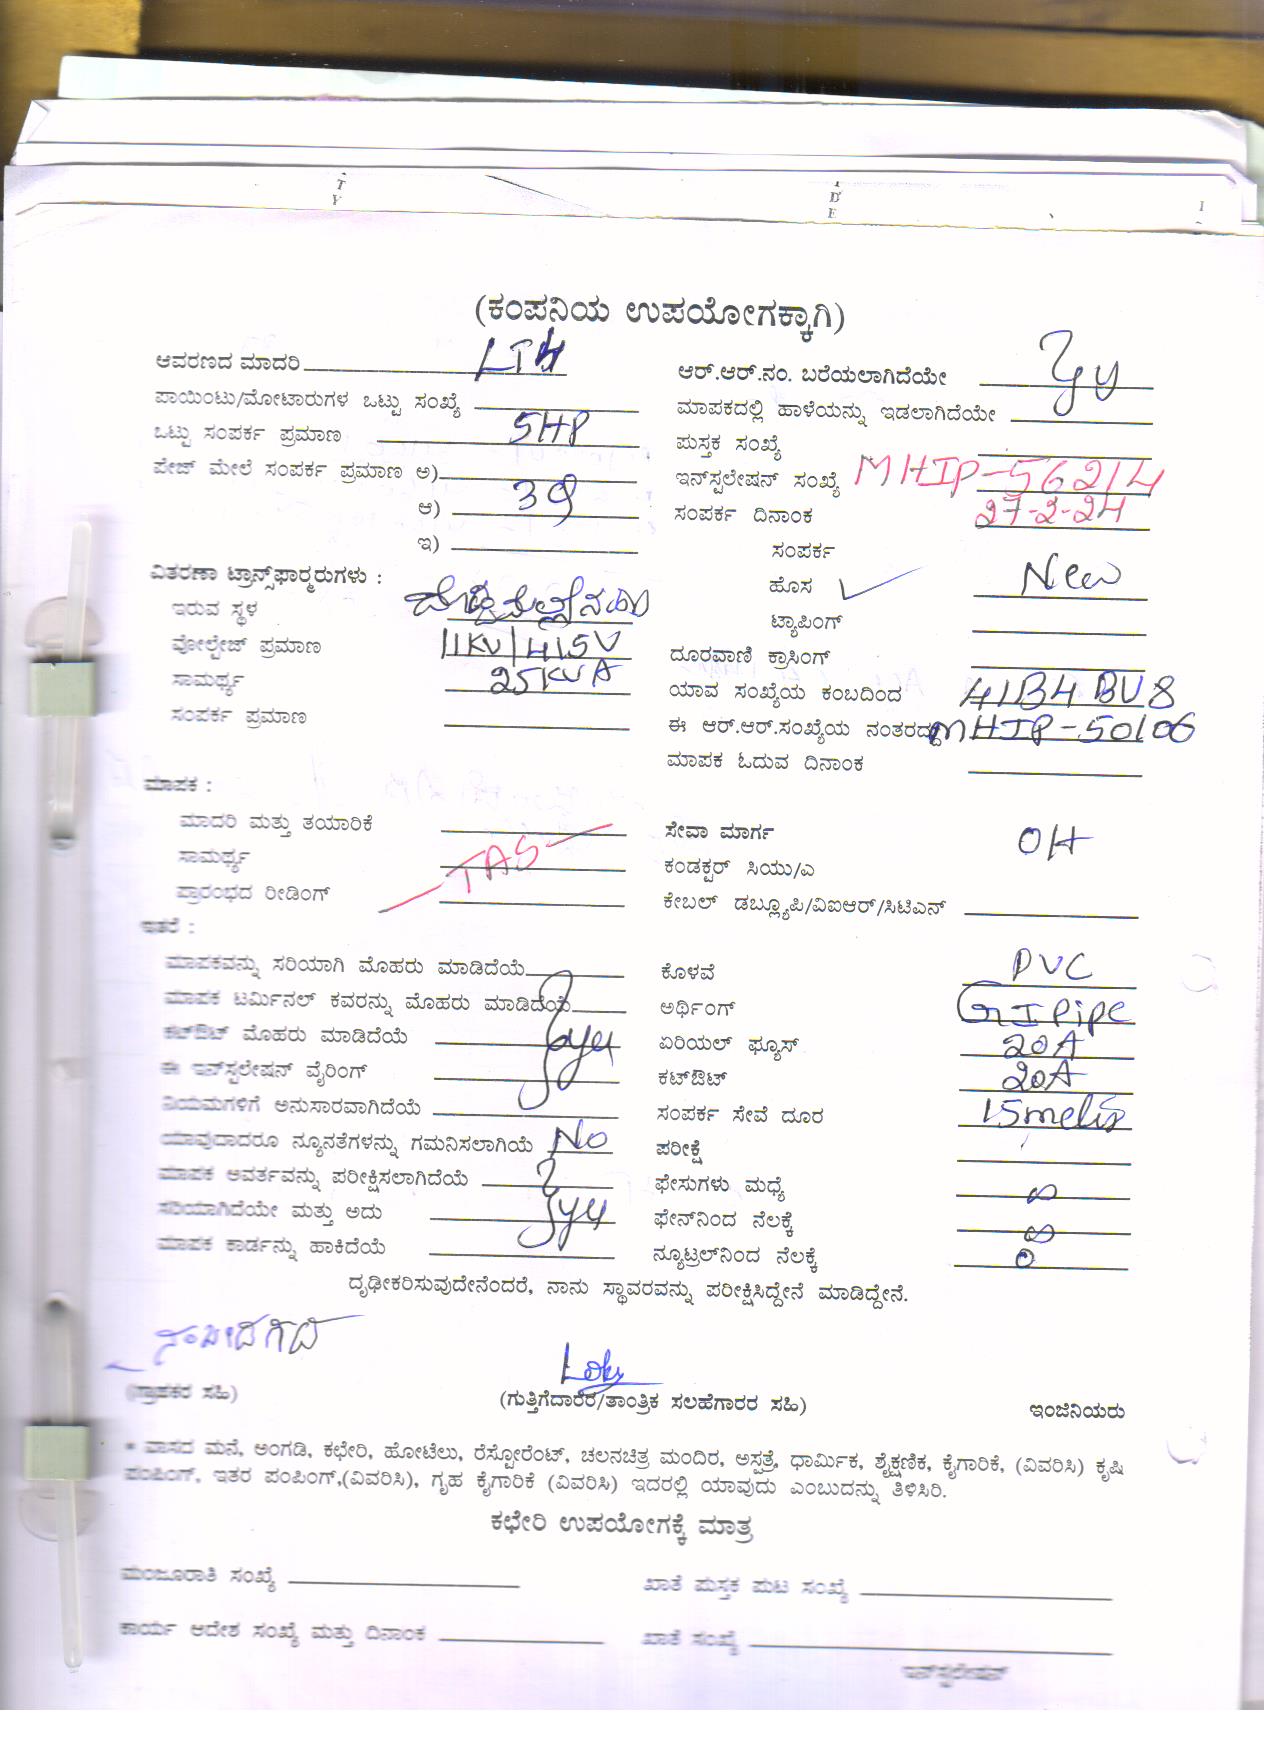 T
Y
I
D
E
I
(ಕಂಪನಿಯ ಉಪಯೋಗಕ್ಕಾಗಿ)
ಆವರಣದ ಮಾದರಿ LT4
ಪಾಯಿಂಟು/ಮೋಟಾರುಗಳ ಒಟ್ಟು ಸಂಖ್ಯೆ
ಒಟ್ಟು ಸಂಪರ್ಕ ಪ್ರಮಾಣ 5HP
ಪೇಜ್ ಮೇಲೆ ಸಂಪರ್ಕ ಪ್ರಮಾಣ ಅ)
ಆ) 3φ
ಇ)
ವಿತರಣಾ ಟ್ರಾನ್ಸ್‌ಫಾರ್‍ಮರುಗಳು :
ಇರುವ ಸ್ಥಳ
ವೋಲ್ಟೇಜ್ ಪ್ರಮಾಣ 11KV/415V
ಸಾಮರ್ಥ್ಯ 25KVA
ಸಂಪರ್ಕ ಪ್ರಮಾಣ
ಮಾಪಕ :
ಮಾದರಿ ಮತ್ತು ತಯಾರಿಕೆ
ಸಾಮರ್ಥ್ಯ TAS
ಪ್ರಾರಂಭದ ರೀಡಿಂಗ್
ಇತರೆ :
ಮಾಪಕವನ್ನು ಸರಿಯಾಗಿ ಮೊಹರು ಮಾಡಿದೆಯೆ
ಮಾಪಕ ಟರ್ಮಿನಲ್ ಕವರನ್ನು ಮೊಹರು ಮಾಡಿದೆಯೆ
ಕಟ್‌ಔಟ್ ಮೊಹರು ಮಾಡಿದೆಯೆ yes
ಈ ಇನ್‌ಸ್ಟಲೇಷನ್ ವೈರಿಂಗ್
ನಿಯಮಗಳಿಗೆ ಅನುಸಾರವಾಗಿದೆಯೆ
ಯಾವುದಾದರೂ ನ್ಯೂನತೆಗಳನ್ನು ಗಮನಿಸಲಾಗಿಯೆ No
ಮಾಪಕ ಅವರ್ತವನ್ನು ಪರೀಕ್ಷಿಸಲಾಗಿದೆಯೆ
ಸರಿಯಾಗಿದೆಯೇ ಮತ್ತು ಅದು yes
ಮಾಪಕ ಕಾರ್ಡನ್ನು ಹಾಕಿದೆಯೆ
ಆರ್.ಆರ್.ನಂ. ಬರೆಯಲಾಗಿದೆಯೇ yes
ಮಾಪಕದಲ್ಲಿ ಹಾಳೆಯನ್ನು ಇಡಲಾಗಿದೆಯೇ
ಪುಸ್ತಕ ಸಂಖ್ಯೆ
ಇನ್‌ಸ್ಟಲೇಷನ್ ಸಂಖ್ಯೆ MHIP-56214
ಸಂಪರ್ಕ ದಿನಾಂಕ 27-2-24
ಸಂಪರ್ಕ
ಹೊಸ ✓ New
ಟ್ಯಾಪಿಂಗ್
ದೂರವಾಣಿ ಕ್ರಾಸಿಂಗ್
ಯಾವ ಸಂಖ್ಯೆಯ ಕಂಬದಿಂದ
ಈ ಆರ್.ಆರ್.ಸಂಖ್ಯೆಯ ನಂತರದ್ದು MHIP-50106
ಮಾಪಕ ಓದುವ ದಿನಾಂಕ
ಸೇವಾ ಮಾರ್ಗ OH
ಕಂಡಕ್ಟರ್ ಸಿಯು/ಎ
ಕೇಬಲ್ ಡಬ್ಲ್ಯೂಪಿ/ವಿಐಆರ್/ಸಿಟಿಎನ್
ಕೊಳವೆ PVC
ಅರ್ಥಿಂಗ್ GI Pipe
ಏರಿಯಲ್ ಫ್ಯೂಸ್ 20A
ಕಟ್‌ಔಟ್ 20A
ಸಂಪರ್ಕ ಸೇವೆ ದೂರ
ಪರೀಕ್ಷೆ
ಫೇಸುಗಳು ಮಧ್ಯೆ ∞
ಫೇನ್‌ನಿಂದ ನೆಲಕ್ಕೆ ∞
ನ್ಯೂಟ್ರಲ್‌ನಿಂದ ನೆಲಕ್ಕೆ 0
ದೃಢೀಕರಿಸುವುದೇನೆಂದರೆ, ನಾನು ಸ್ಥಾವರವನ್ನು ಪರೀಕ್ಷಿಸಿದ್ದೇನೆ ಮಾಡಿದ್ದೇನೆ.
(ಗ್ರಾಹಕರ ಸಹಿ)
(ಗುತ್ತಿಗೆದಾರರ/ತಾಂತ್ರಿಕ ಸಲಹೆಗಾರರ ಸಹಿ)
ಇಂಜಿನಿಯರು
* ವಾಸದ ಮನೆ, ಅಂಗಡಿ, ಕಛೇರಿ, ಹೋಟೆಲು, ರೆಸ್ಟೋರೆಂಟ್, ಚಲನಚಿತ್ರ ಮಂದಿರ, ಅಸ್ಪತ್ರೆ, ಧಾರ್ಮಿಕ, ಶೈಕ್ಷಣಿಕ, ಕೈಗಾರಿಕೆ, (ವಿವರಿಸಿ) ಕೃಷಿ
ಪಂಪಿಂಗ್, ಇತರ ಪಂಪಿಂಗ್,(ವಿವರಿಸಿ), ಗೃಹ ಕೈಗಾರಿಕೆ (ವಿವರಿಸಿ) ಇದರಲ್ಲಿ ಯಾವುದು ಎಂಬುದನ್ನು ತಿಳಿಸಿರಿ.
ಕಛೇರಿ ಉಪಯೋಗಕ್ಕೆ ಮಾತ್ರ
ಮಂಜೂರಾತಿ ಸಂಖ್ಯೆ
ಖಾತೆ ಪುಸ್ತಕ ಪುಟ ಸಂಖ್ಯೆ
ಕಾರ್ಯ ಆದೇಶ ಸಂಖ್ಯೆ ಮತ್ತು ದಿನಾಂಕ
ಖಾತೆ ಸಂಖ್ಯೆ
ಇನ್‌ಸ್ಟಲೇಷನ್